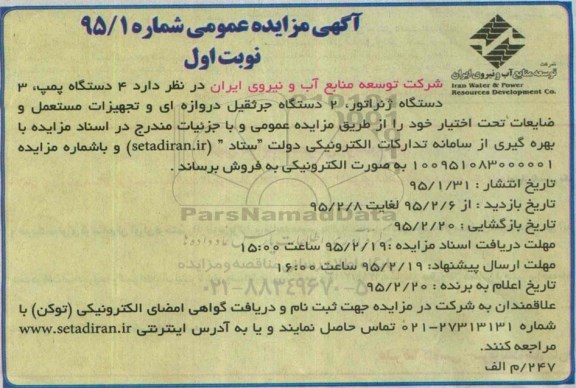 آگهی مزایده عمومی شماره ۹۵/۱
نوبت اول
شرکت
توسعه منابع آب و نیروی ایران
Iran Water & Power
Resources Development Co.
شرکت توسعه منابع آب و نیروی ایران در نظر دارد ۴ دستگاه پمپ، ۳
دستگاه ژنراتور، ۲ دستگاه جرثقیل دروازه ای و تجهیزات مستعمل و
ضایعات تحت اختیار خود را از طریق مزایده عمومی و با جزئیات مندرج در اسناد مزایده با
بهره گیری از سامانه تدارکات الکترونیکی دولت "ستاد" (setadiran.ir) و باشماره مزایده
۱۰۰۹۵۱۰۸۳۰۰۰۰۰۱ به صورت الکترونیکی به فروش برساند.
تاریخ انتشار : ۹۵/۱/۳۱
تاریخ بازدید : از ۹۵/۲/۶ لغایت ۹۵/۲/۸
ParsNamadData
تاریخ بازگشایی : ۹۵/۲/۲۰
مهلت دریافت اسناد مزایده :۹۵/۲/۱۹ ساعت ۱۵:۰۰
مهلت ارسال پیشنهاد: ۹۵/۲/۱۹ ساعت ۱۶:۰۰
تاریخ اعلام به برنده : ۹۵/۲/۲۰
۰۲۱-۸۸۳۴۹۶۷۰-۵
علاقمندان به شرکت در مزایده جهت ثبت نام و دریافت گواهی امضای الکترونیکی (توکن) با
شماره ۲۷۳۱۳۱۳۱-۰۲۱ تماس حاصل نمایند و یا به آدرس اینترنتی www.setadiran.ir
مراجعه کنند.
۲۴۷/م الف